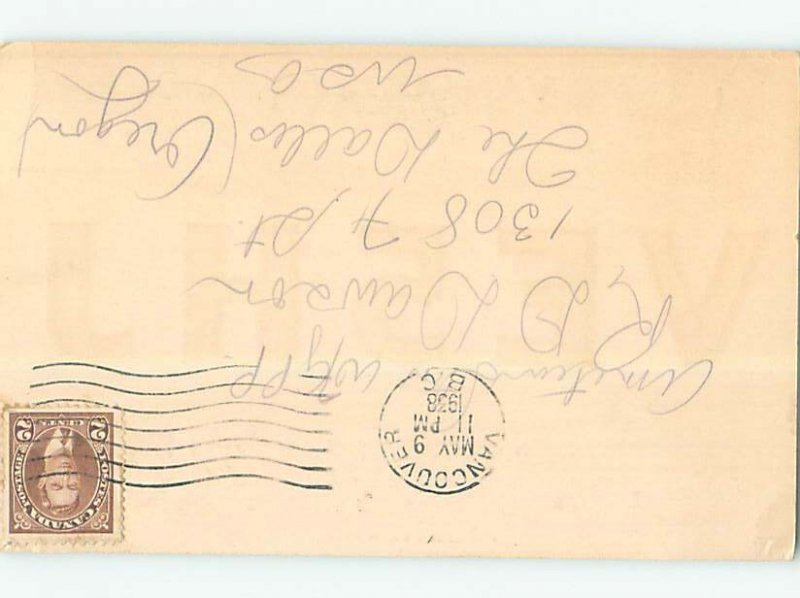 VANCOUVER
MAY 9
11 PM
1938
B.C.
POSTES CANADA POSTAGE
2 CENTS 2
Amateur
R D Dawson
1308 7 st
The Dalles (Oregon)
USA
VE5HJ